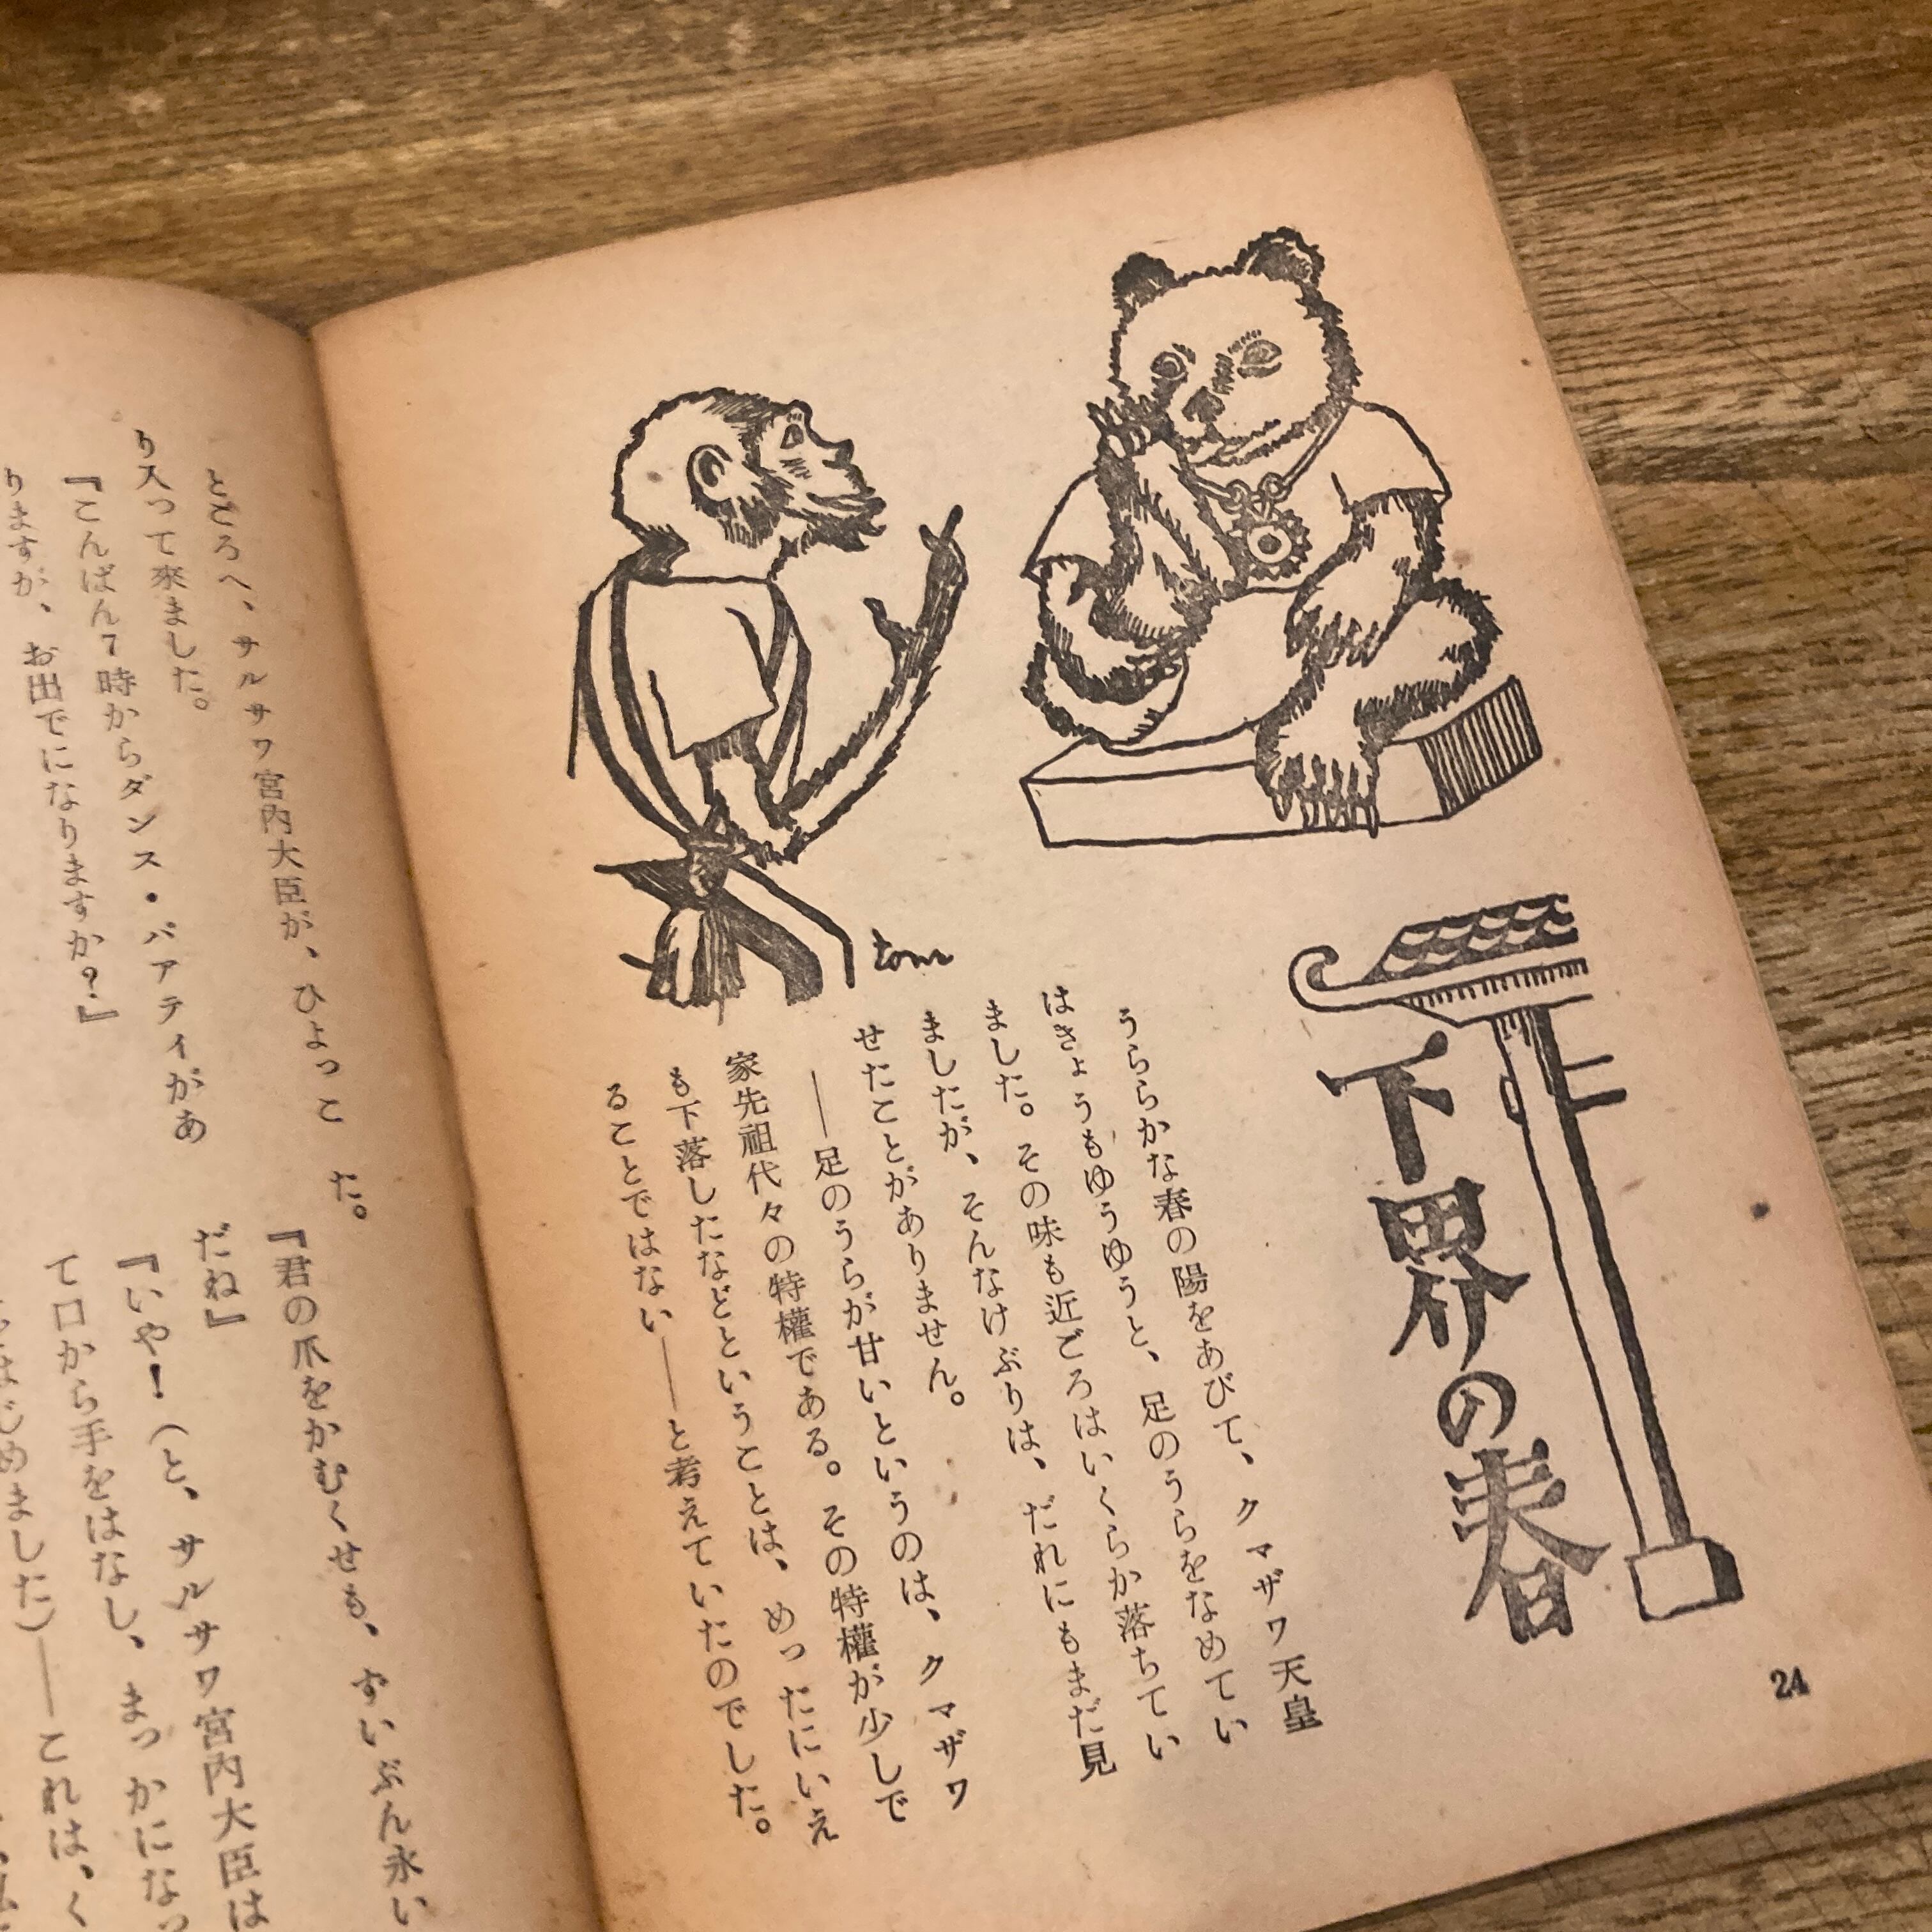 下界の春
うららかな春の陽をあびて、クマザワ天皇
はきょうもゆうゆうと、足のうらをなめてい
ました。その味も近ごろはいくらか落ちてい
ましたが、そんなけぶりは、だれにもまだ見
せたことがありません。
――足のうらが甘いというのは、クマザワ
家先祖代々の特權である。その特權が少しで
も下落したなどということは、めったにいえ
ることではない――と考えていたのでした。
tom
24
ところへ、サルサワ宮内大臣が、ひよっこ
り入って來ました。
『こんばん7時からダンス・パアティがあ
りますが、お出でになりますか?』
た。
『君の爪をかむくせも、ずいぶん永い
だね』
『いや!(と、サルサワ宮内大臣は
て口から手をはなし、まっかになっ
はじめました)――これは、く